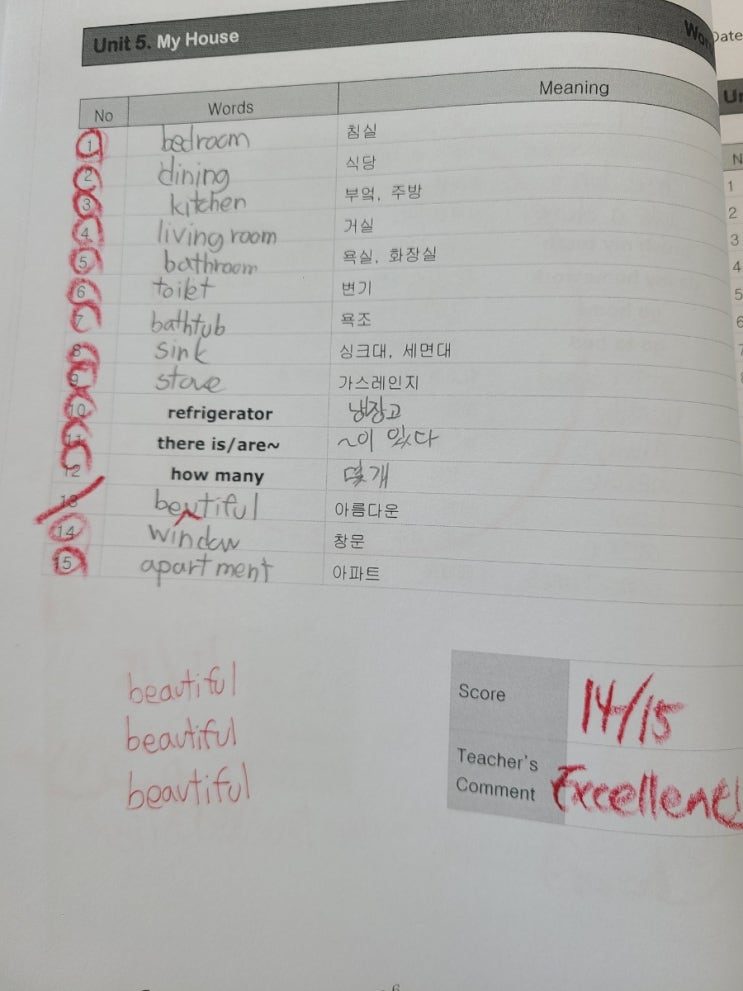 Unit 5. My House
Date
No Words Meaning
1 bedroom 침실
2 dining 식당
3 kitchen 부엌, 주방
4 living room 거실
5 bathroom 욕실, 화장실
6 toilet 변기
7 bathtub 욕조
8 sink 싱크대, 세면대
9 stove 가스레인지
10 refrigerator 냉장고
11 there is/are~ ~이 있다
12 how many 몇 개
13 beutiful 아름다운
14 window 창문
15 apartment 아파트
beautiful
beautiful
beautiful
Score 14/15
Teacher's
Comment Excellent!
6
N
1
2
3
4
5
6